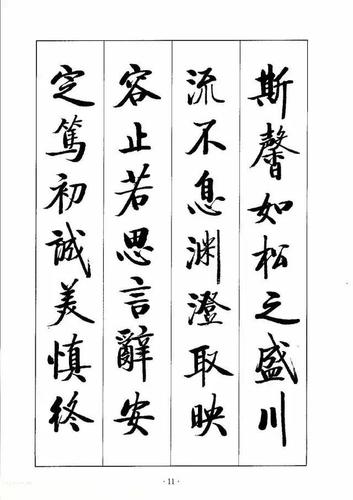 斯馨如松之盛川
流不息渊澄取映
容止若思言辭安
定篤初誠美慎终
·11·